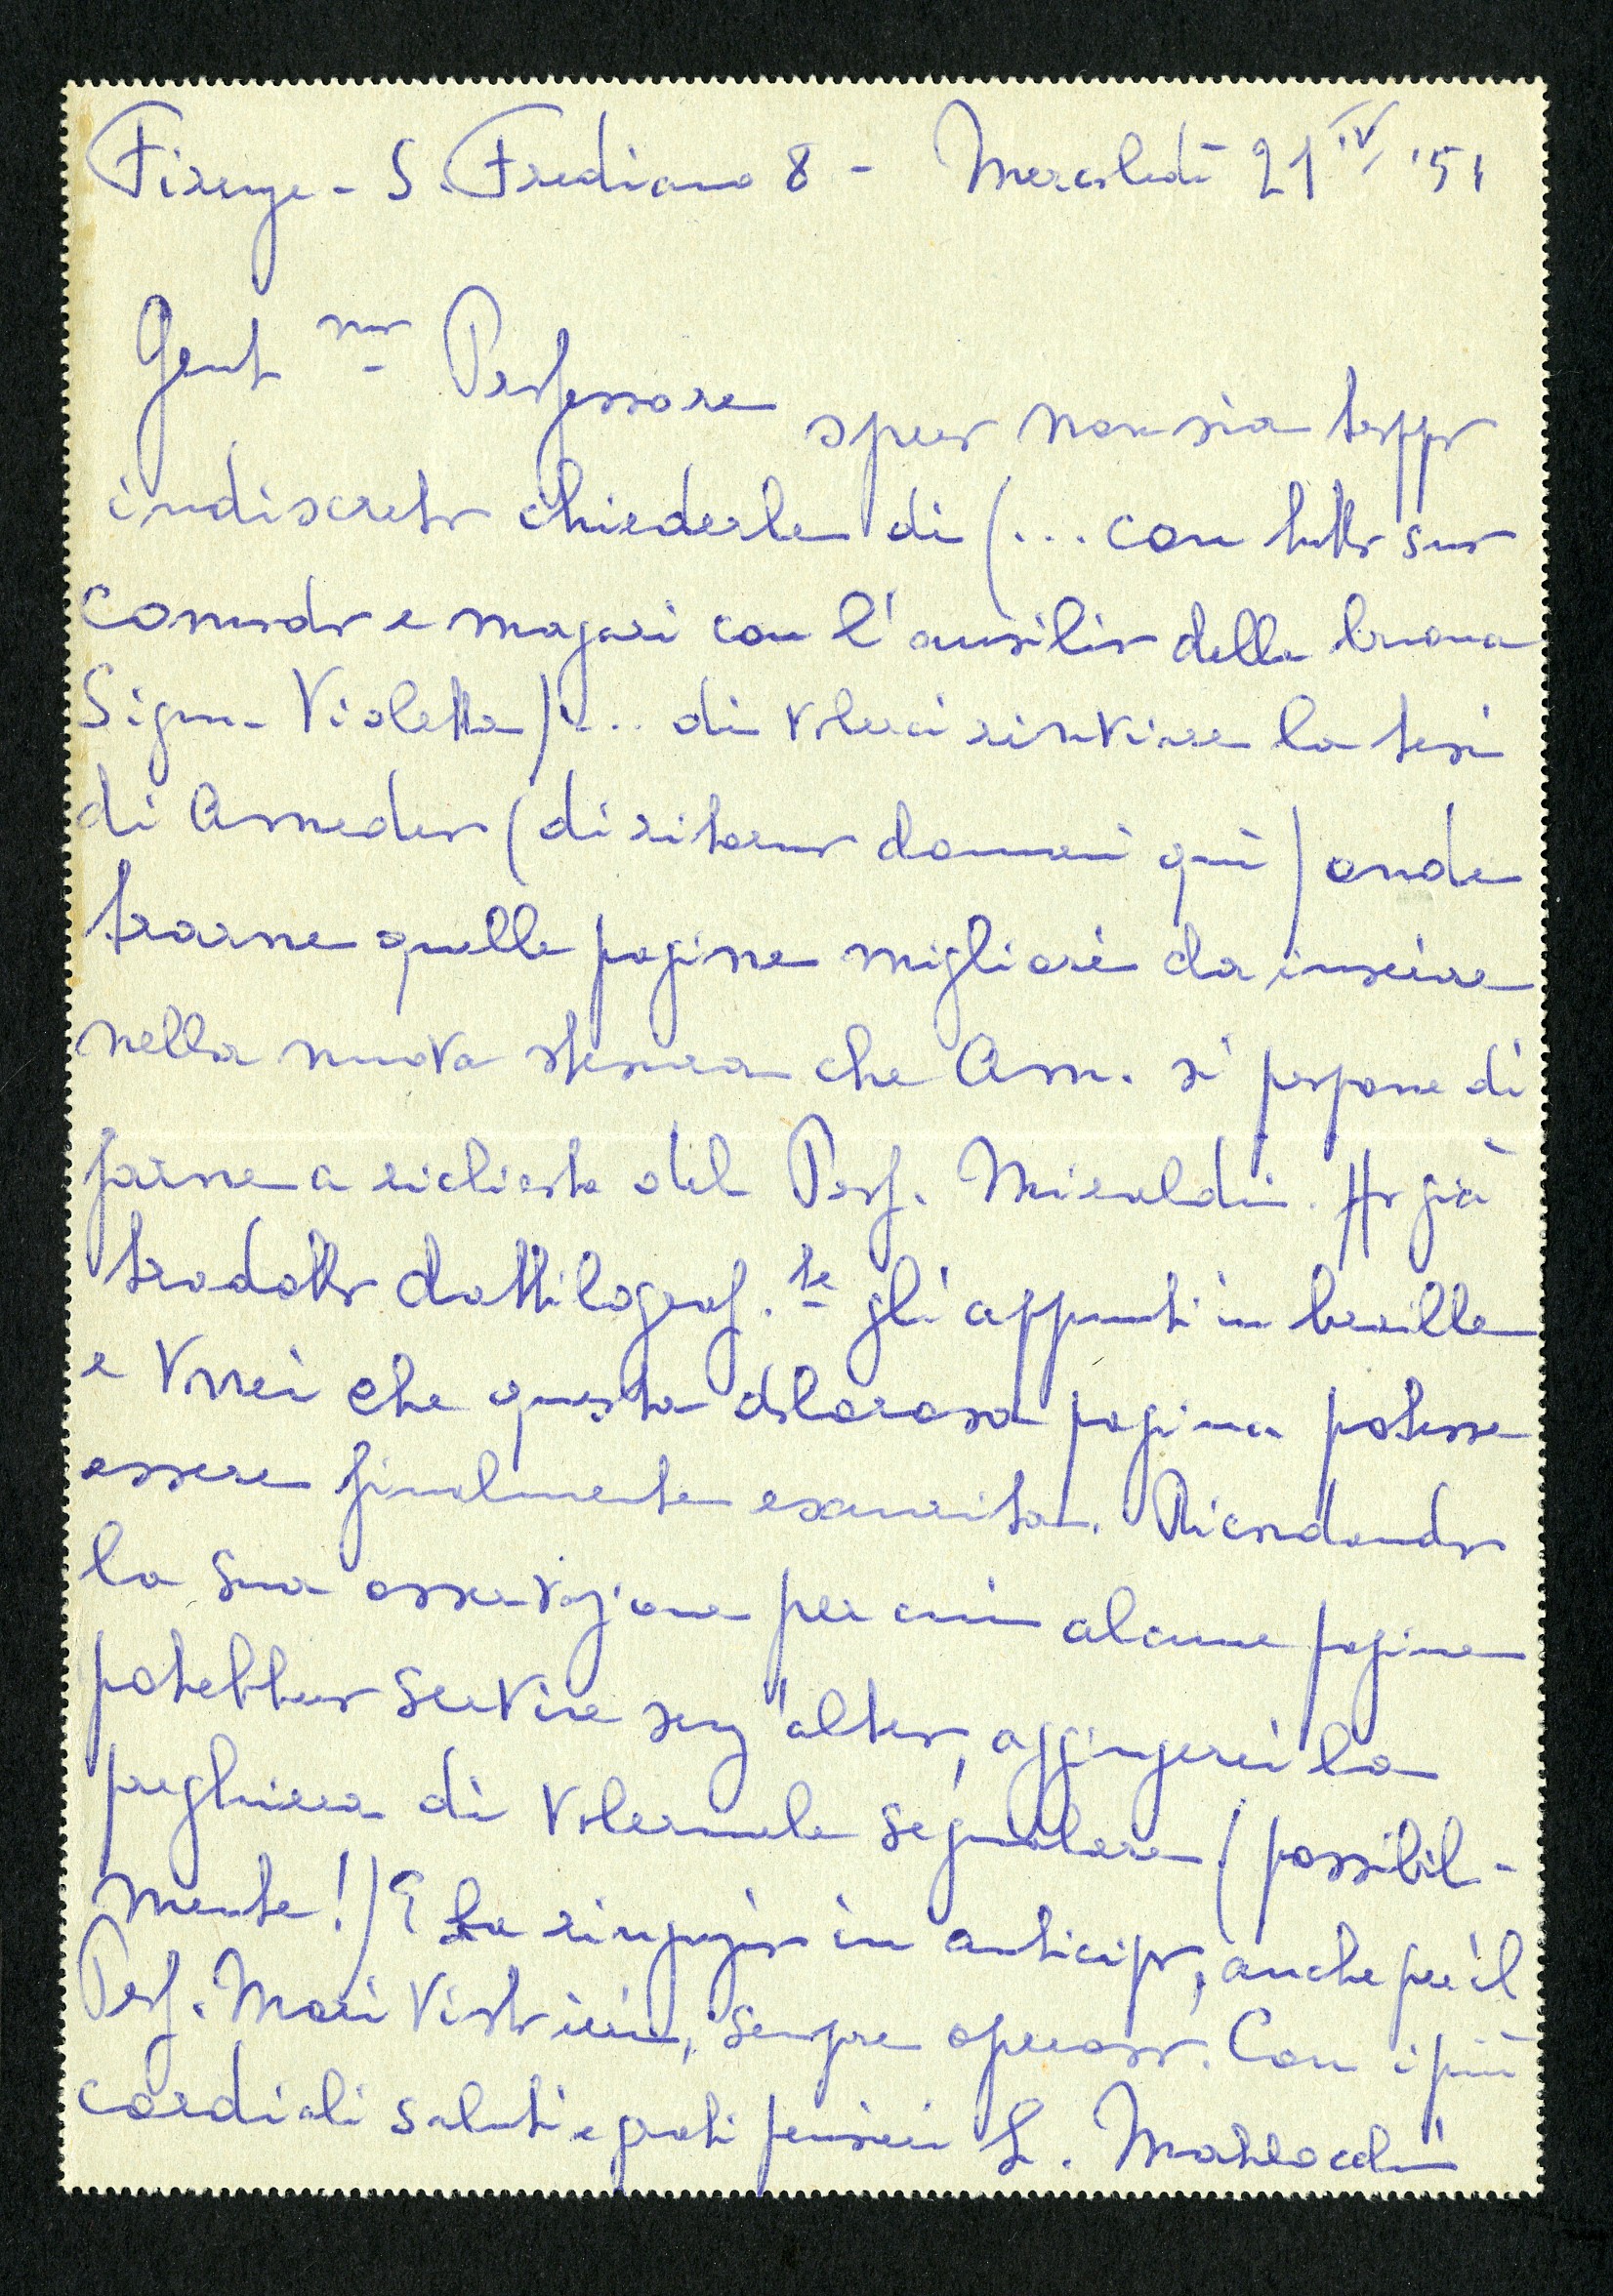 Firenze - S. Frediano 8 - Mercoledì 21 IV '51
Gent mo Professore spero non sia troppo
indiscreto chiederle di (... con tutto suo
comodo e magari con l'ausilio della buona
Sign.a Violetta)... di volerci rinviare la tesi
di Amedeo (di ritorno domani qui) onde
trarne quelle pagine migliori da inserire
nella nuova stesura che Am. si propone di
farne a richiesta del Prof. Miraldi. Ho già
tradotto dattilograf.te gli appunti in braille
e vorrei che questa dolorosa pagina potesse
essere finalmente esaurita. Ricordando
la sua osservazione per cui alcune pagine
potebbero servire senz'altro, aggiungerei la
preghiera di volermele segnalare (possibil-
mente!) E La ringrazio in anticipo, anche per il
Prof. Mori Vistrini, sempre operoso. Con i più
cordiali saluti e grati pensieri L.